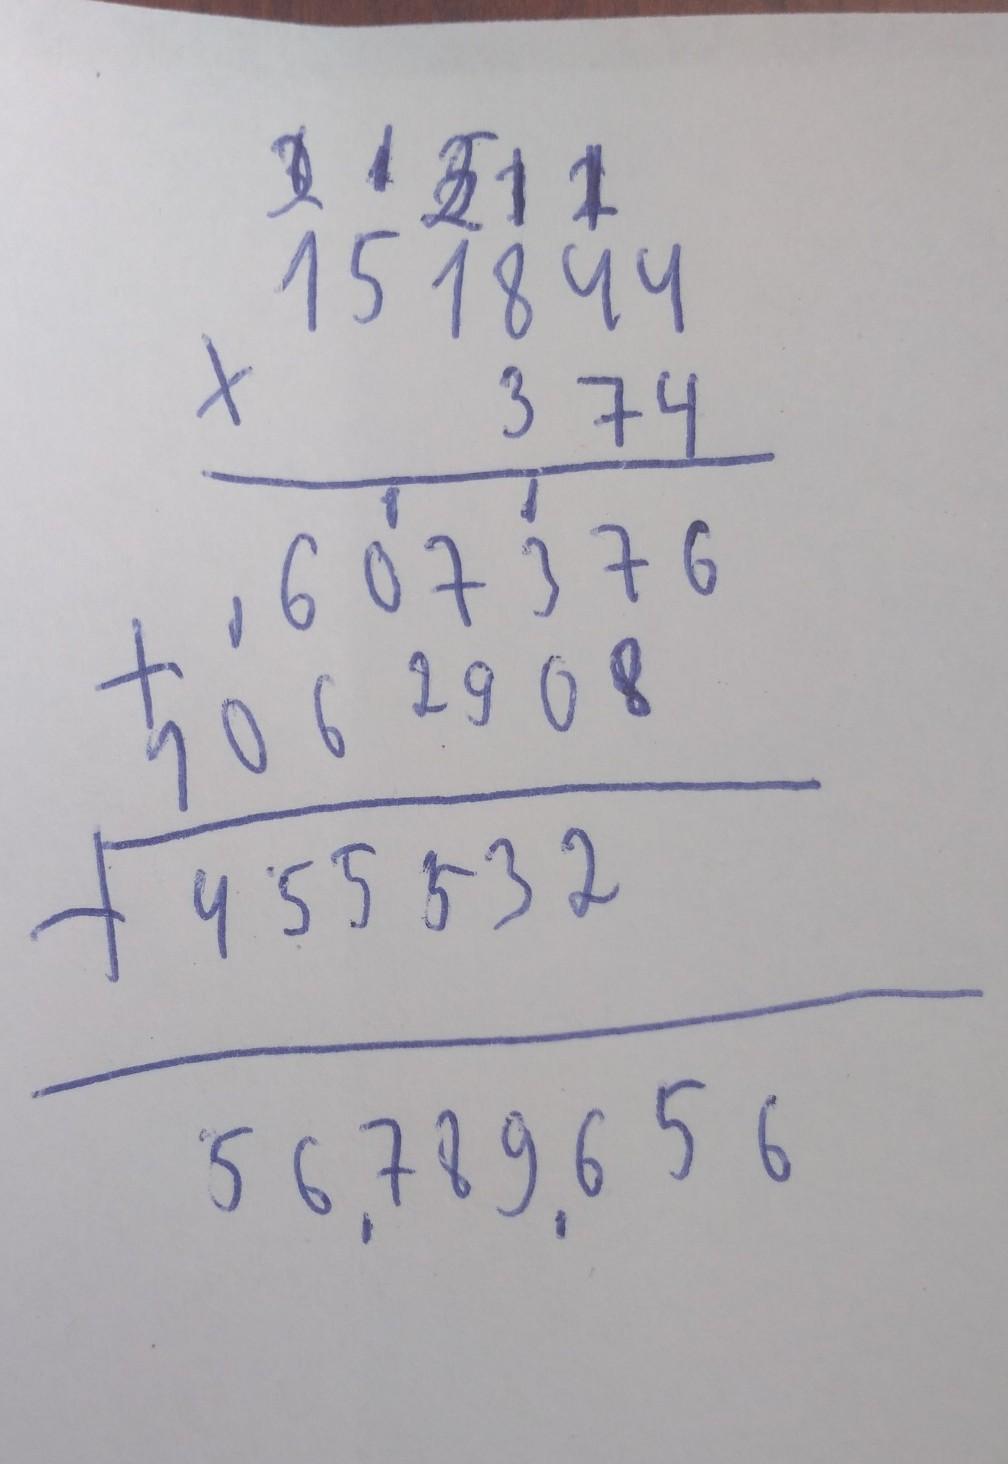 1 1
151844
× 374
1 1
1 607376
+ 1062908
+ 455532
56,789,656